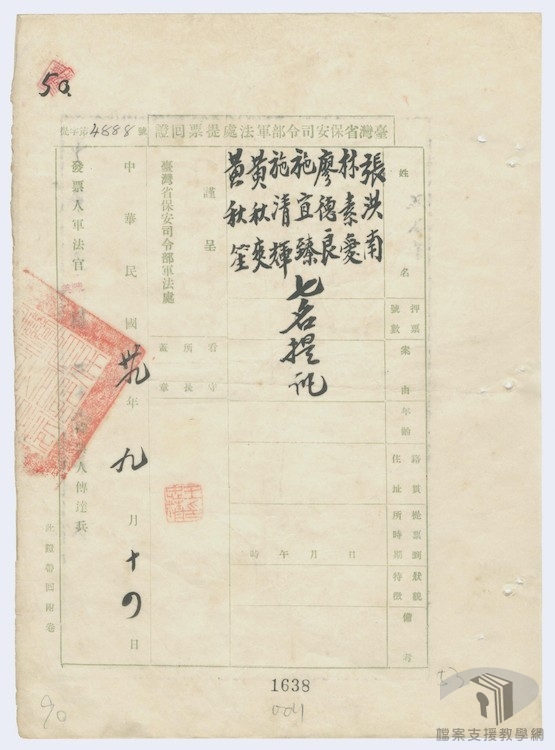 50
臺灣省保安司令部軍法處提票回證
字第4888號
姓名
張洪南
林素愛
廖德良
施宜臻
施清輝
黃秋爽
黃秋笙
七名提訊
押票號數
案由
年齡
籍貫住址
提票到所時期
月 日 午 時
狀貌特徵
備考
謹呈
臺灣省保安司令部軍法處
看守所長
蓋章
中華民國卅九年九月十四日
發票人軍法官
人傳達兵
此證發回附卷
1638
90
檔案支援教學網